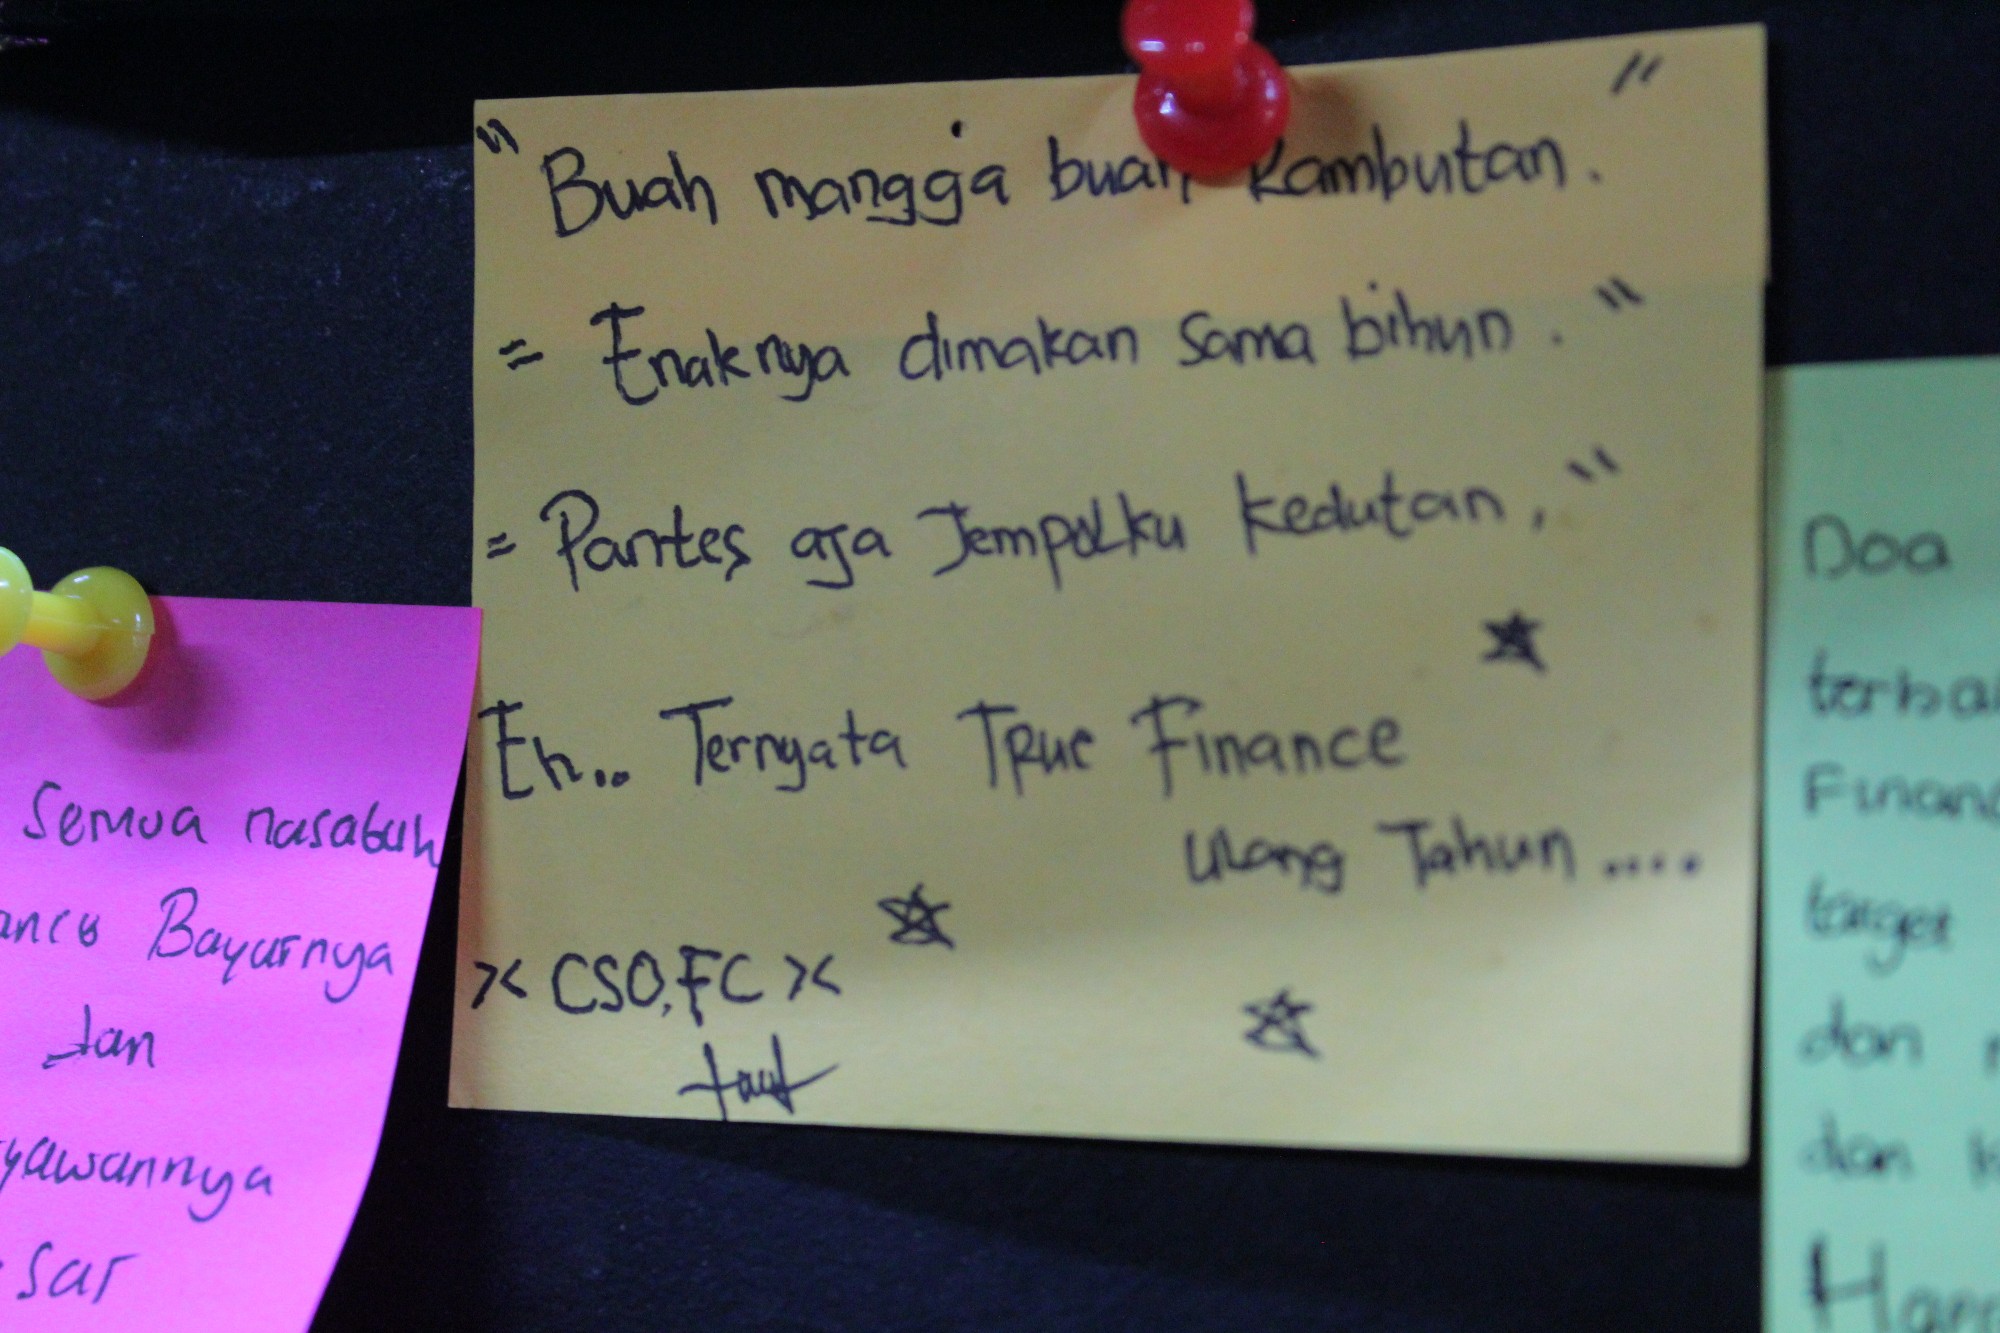 " Buah mangga buah Rambutan. "
= Enaknya dimakan sama bihun. "
= Pantes aja Jempolku kedutan, "
Eh.. Ternyata True Finance
Ulang Tahun ....
>< CSO, FC ><
Semua nasabah
Bayarnya
dan
yawannya
sar
Doa
Finan
target
dan
dan